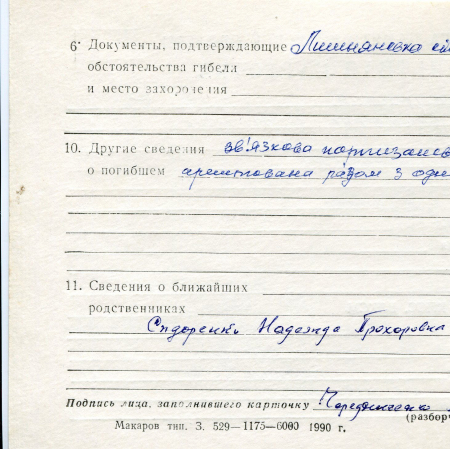 6. Документы, подтверждающие
обстоятельства гибели
и место захоронения
10. Другие сведения зв'язкова
о погибшем арештована разом з
11. Сведения о ближайших
родственниках
Сидоренко Надежда Прохоровна
Подпись лица, заполнившего карточку
(разборч
Макаров тип. З. 529—1175—6000 1990 г.